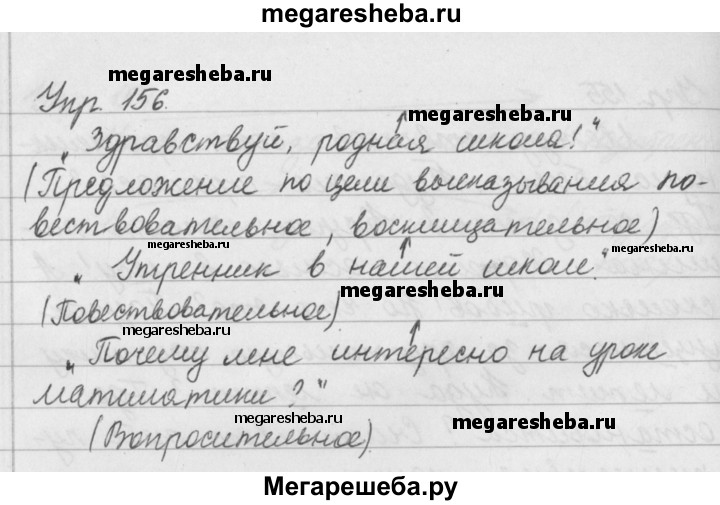 megaresheba.ru
megaresheba.ru
Упр. 156.
megaresheba.ru
„Здравствуй, родная школа!"
(Предложение по цели высказывания по-
вествовательное, восклицательное)
megaresheba.ru
megaresheba.ru
„Утренник в нашей школе."
megaresheba.ru
(Повествовательное)
megaresheba.ru
„Почему мне интересно на уроке
математики?"
megaresheba.ru
megaresheba.ru
(Вопросительное).
Мегарешеба.ру